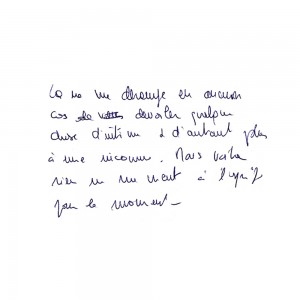 Ca ne me dérange en aucun
cas de dévoiler quelque
chose d'intime & d'autant plus
à une inconnue. Mais voilà
rien ne me vient à l'esprit
pour le moment_